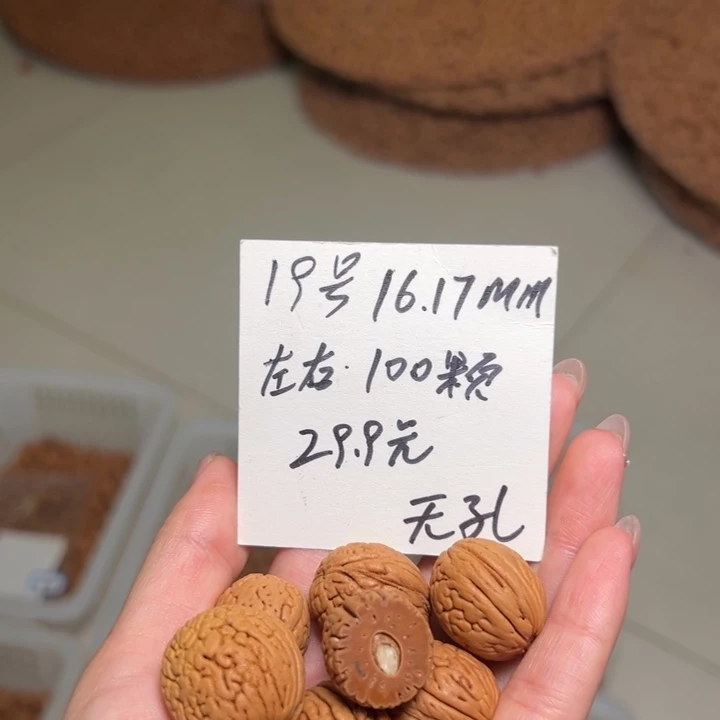 19号 16.17MM
左右·100颗
29.9元
无孔